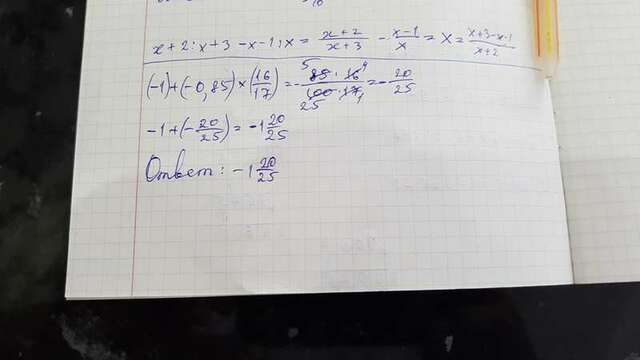 x+2:x+3-x-1:x= \frac{x+2}{x+3} - \frac{x-1}{x} = x = \frac{x+3-x-1}{x+2}
(-1)+(-0,85)×(\frac{16}{17})=-\frac{85·16}{100·17}=-\frac{20}{25}
-1+(-\frac{20}{25})=-1\frac{20}{25}
Ответ: -1\frac{20}{25}